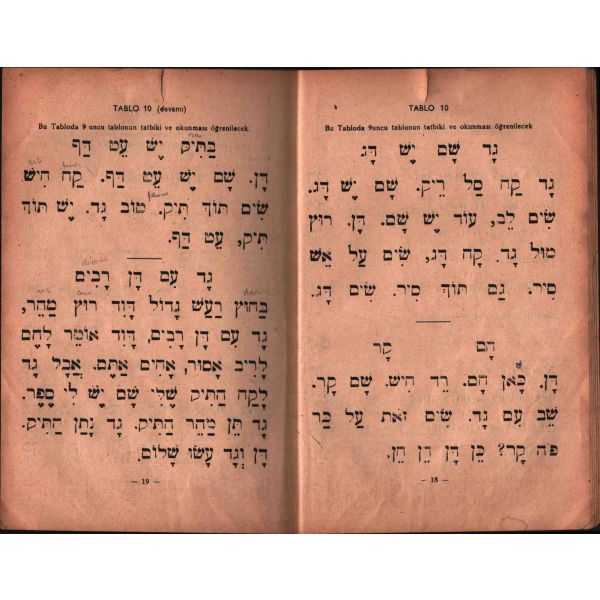 TABLO 10
Bu Tabloda 9uncu tablonun tatbiki ve okunması öğrenilecek
גָד שָׁם יֵשׁ דָג.
גָד קַח סַל רֵיק. שָׁם יֵשׁ דָג.
שִׂים לֵב, עוֹד יֵשׁ שָׁם. דָן. רוּץ
מוּל גָד. קַח דָג, שִׂים עַל אֵשׁ
סִיר. גַם תוֹךְ סִיר. שִׂים דָג.
חָם קָר
דָן. כָּאן חַם. רֵד חִישׁ. שָׁם קַר.
שֵׁב עִם גָד. שִׂים זֹאת עַל כַּר
פֹּה קָר? כֵּן דָן חֵן.
— 18 —
TABLO 10 (devamı)
Bu Tabloda 9 uncu tablonun tatbiki ve okunması öğrenilecek.
בַּתִּיק יֵשׁ עֵט דַּף
דָּן. שָׁם יֵשׁ עֵט דַּף. קַח חִישׁ.
שִׂים תוֹךְ תִּיק. טוֹב גָד. יֵשׁ תוֹךְ
תִּיק, עֵט דַּף.
גָד עִם דָן רָבִים
בַּחוּץ רַעַשׁ גָדוֹל דָוִד רוּץ מַהֵר,
גָד עִם דָן רָבִים, דָוִד אוֹמֵר לָהֶם
לָרִיב אָסוּר, אַחִים אַתֶּם. אֲבָל גָד
לָקַח הַתִּיק שֶׁלִּי שָׁם יֶשׁ לִי סֵפֶר.
גָד תֵּן מַהֵר הַתִּיק. גָד נָתַן הַתִּיק.
דָן וְגָד עָשׂוּ שָׁלוֹם.
— 19 —